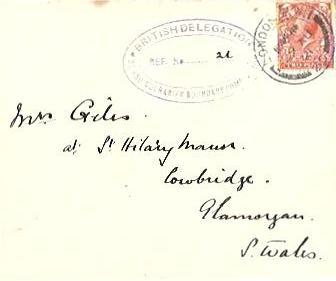 BRITISH DELEGATION
REF. No 21
BOUNDARY COM
LONDON
Mrs Giles.
at St Hilary Manor.
Cowbridge.
Glamorgan.
S. Wales.